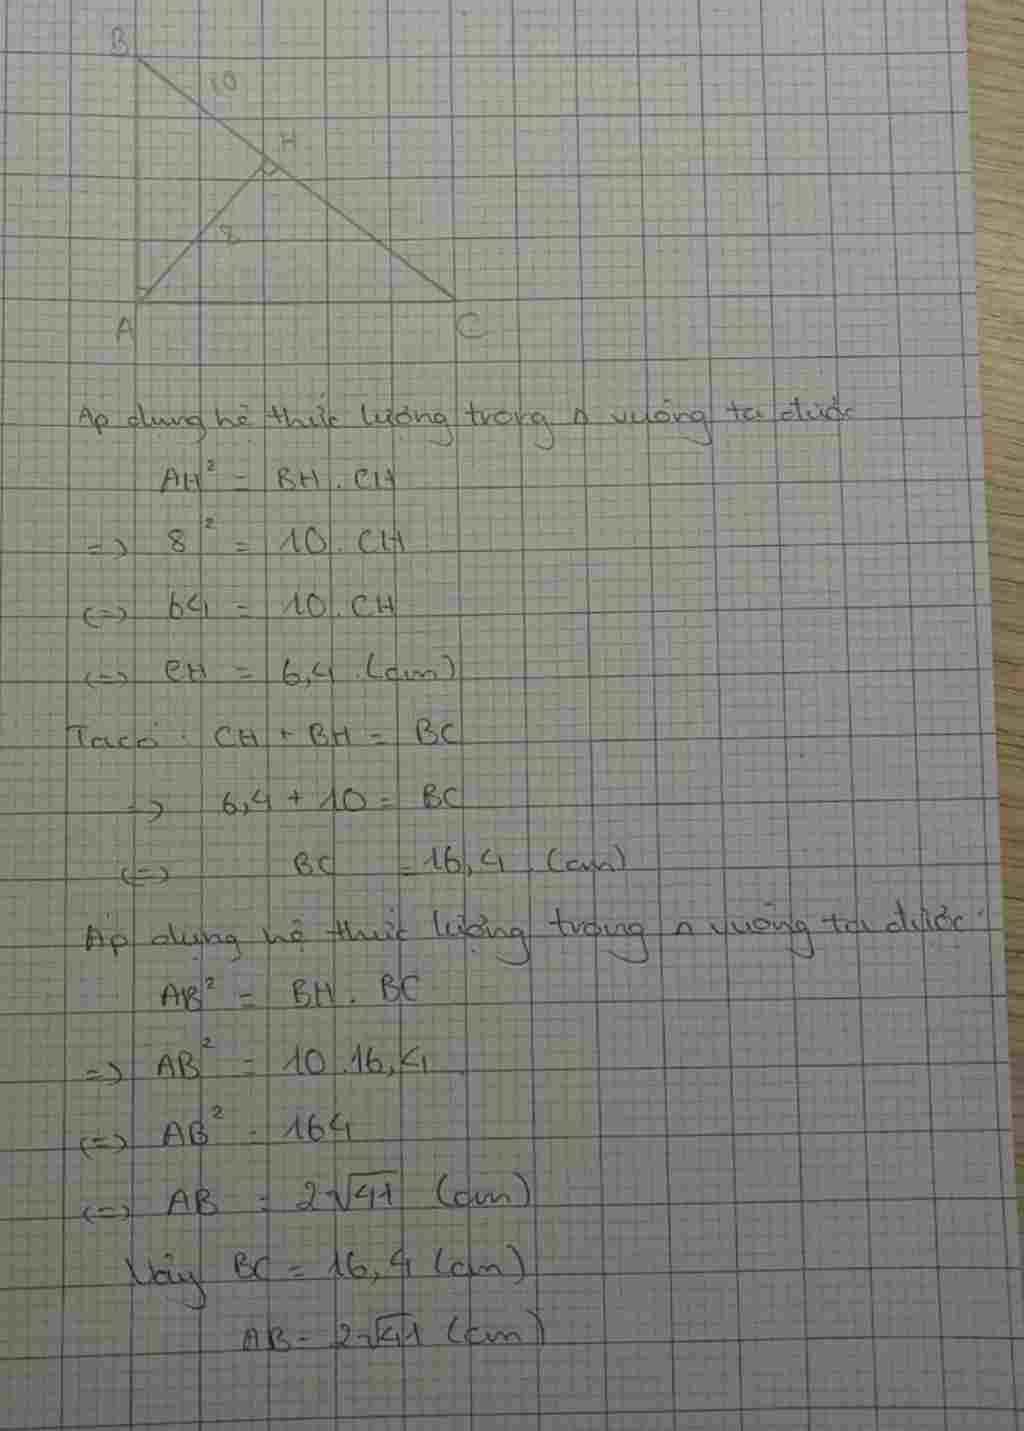 B
10
H
8
A
C
Áp dụng hệ thức lượng trong Δ vuông ta được
AH² = BH . CH
=> 8² = 10 . CH
<=> 64 = 10 . CH
<=> CH = 6,4 (cm)
Ta có : CH + BH = BC
=> 6,4 + 10 = BC
<=> BC = 16,4 (cm)
Áp dụng hệ thức lượng trong Δ vuông ta được :
AB² = BH . BC
=> AB² = 10 . 16,4
<=> AB² = 164
<=> AB = 2√41 (cm)
Vậy BC = 16,4 (cm)
AB = 2√41 (cm)